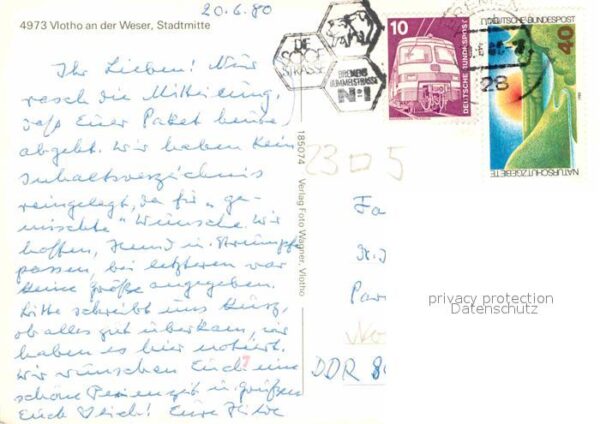 20.6.80
4973 Vlotho an der Weser, Stadtmitte
Ihr Lieben! Nur
rasch die Mitteilung,
daß Euer Paket heute
abgeht. Wir haben kein
Inhaltsverzeichnis
reingelegt, da für „ge-
mischte" Wünsche. Wir
hoffen, Hemd u. Strümpfe
passen, bei letzteren war
keine Größe angegeben.
Bitte schreibt uns kurz,
ob alles gut überkam, wir
haben es hier notiert.
Wir wünschen Euch eine
schöne Ferienzeit u. grüßen
Euch herzlich! Eure
185074 Verlag Foto Wagner, Vlotho
DIE
STRASSE
BREMENS
HEMMELSTRASSE
N=1
10
DEUTSCHE BUNDESPOST
28
DEUTSCHE BUNDESPOST
40
NATURSCHUTZGEBIETE
23 5
Fa
Par
DDR 80
privacy protection
Datenschutz